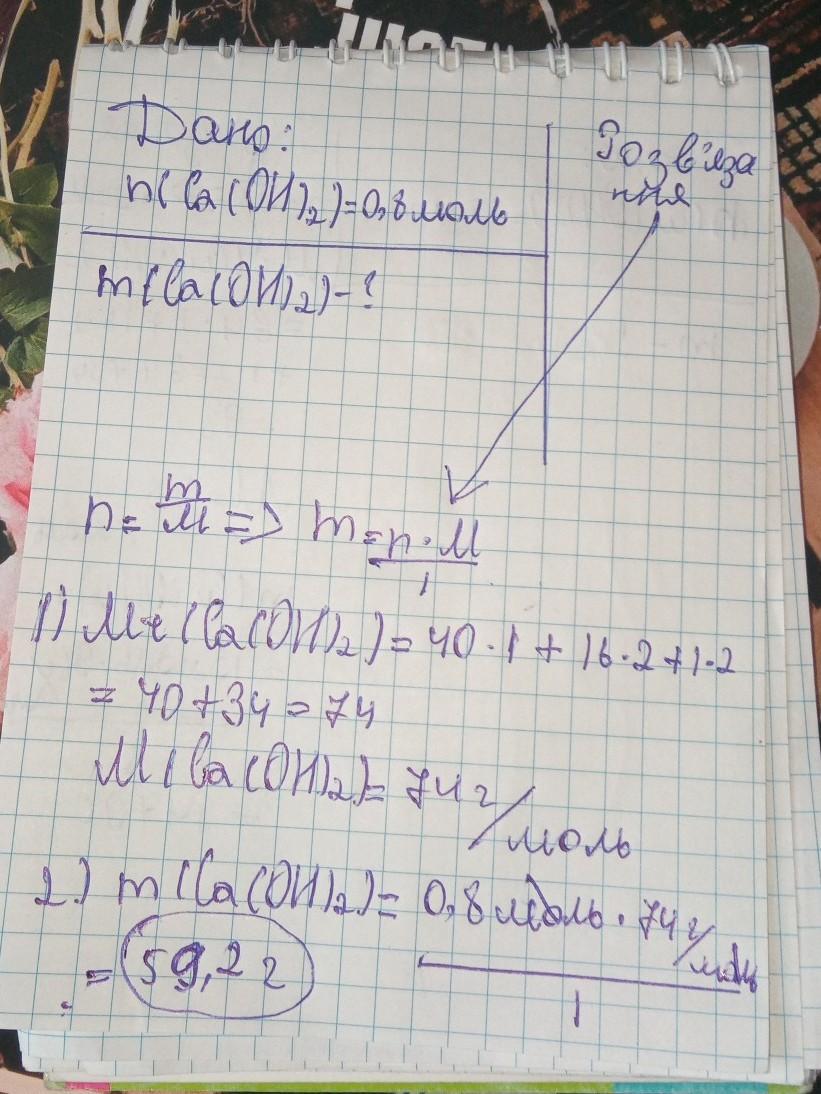 Дано:
n(Ca(OH)₂)=0,8 моль
m(Ca(OH)₂)-?
Розв'яза
ння
n = m/M => m = n·M/1
1) Mr(Ca(OH)₂) = 40·1 + 16·2+1·2
= 40+34=74
M(Ca(OH)₂)= 74 г/моль
2.) m(Ca(OH)₂)= 0,8 моль · 74 г/моль / 1
= 59,2 г